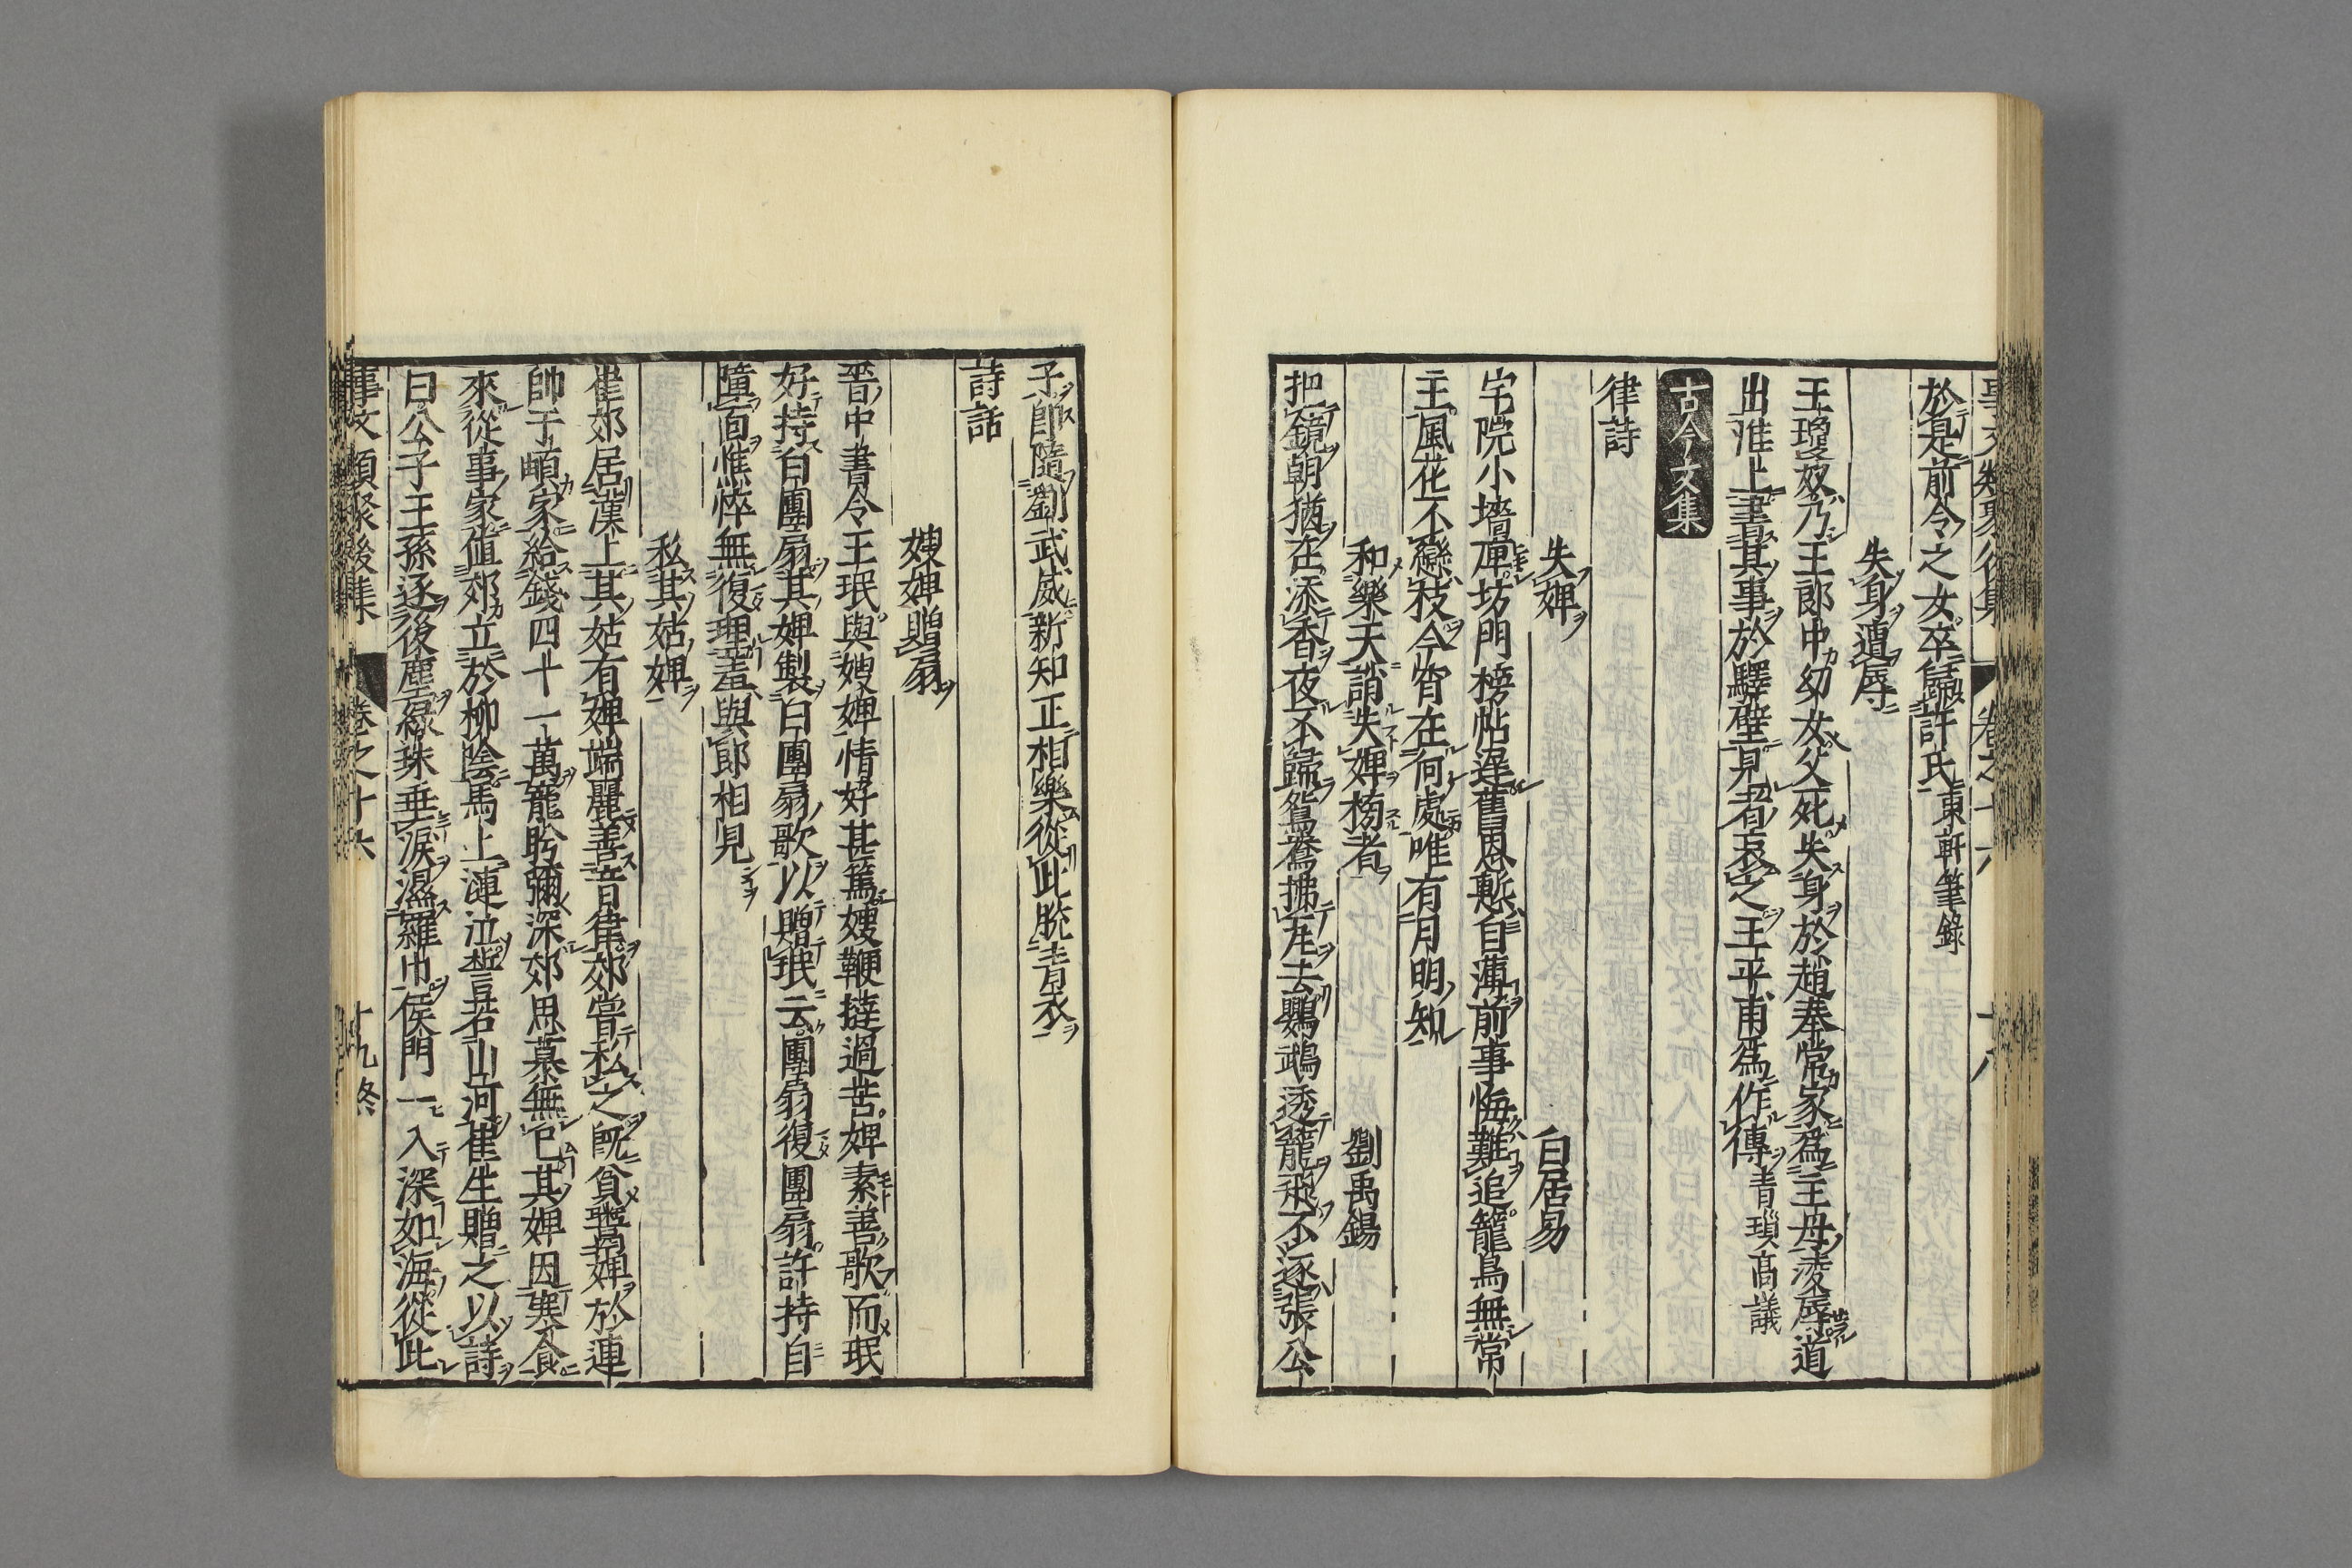 事文類聚後集 卷之十六 十八
於是前令之女卒歸許氏東軒筆錄
失身遭辱
王瓊奴乃王郎中幼女父死失身於趙奉常家爲主母凌辱道
出淮上書其事於驛壁見者哀之王平甫爲作傳青瑣高議
古今文集
律詩
失婢 白居易
宅院小墻庳坊門榜帖遲舊恩慙自薄前事悔難追籠鳥無常
主風花不戀枝今宵在何處唯有月明知
和樂天誚失婢榜者 劉禹錫
把鏡朝猶在添香夜不歸鴛鴦拂瓦去鸚鵡透籠飛不逐張公
子即隨劉武威新知正相樂從此脫青衣
詩話
嫂婢贈扇
晉中書令王珉與嫂婢情好甚篤嫂鞭撻過苦婢素善歌而珉
好持白團扇其婢製白團扇歌以贈珉云團扇復團扇許持自
障面憔悴無復理羞與郎相見
私其姑婢
崔郊居漢上其姑有婢端麗善音律郊嘗私之既貧鬻婢於連
帥于頔家給錢四十一萬寵盻彌深郊思慕無已其婢因寒食
來從事家値郊立於柳陰馬上漣泣誓若山河崔生贈之以詩
曰公子王孫逐後塵綠珠垂淚濕羅巾侯門一入深如海從此
事文類聚後集 卷之十六 十九終